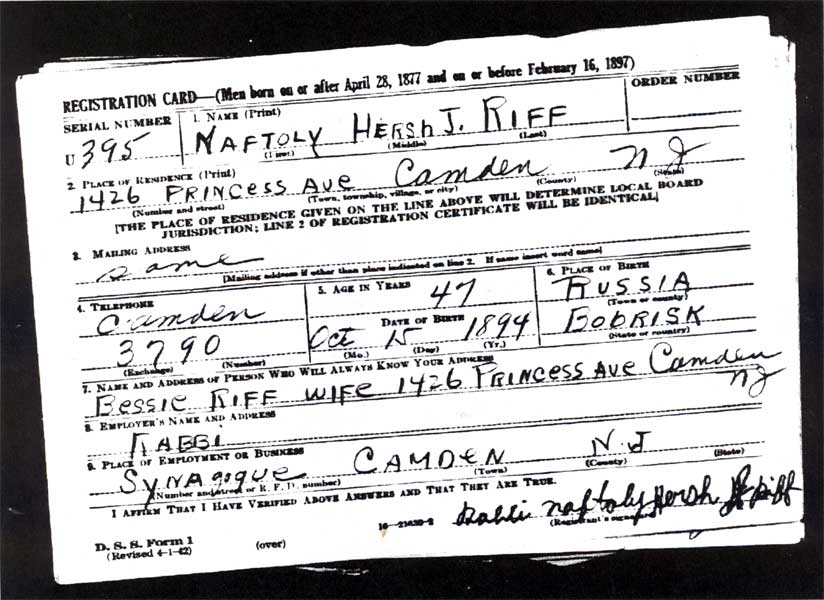 REGISTRATION CARD—(Men born on or after April 28, 1877 and on or before February 16, 1897)
SERIAL NUMBER
1. NAME (Print)
ORDER NUMBER
U 395
NAFTOLY HERSH J. RIFF
(First) (Middle) (Last)
2. PLACE OF RESIDENCE (Print)
1426 PRINCESS AVE Camden NJ
(Number and street) (Town, township, village, or city) (County) (State)
[THE PLACE OF RESIDENCE GIVEN ON THE LINE ABOVE WILL DETERMINE LOCAL BOARD
JURISDICTION; LINE 2 OF REGISTRATION CERTIFICATE WILL BE IDENTICAL]
3. MAILING ADDRESS
Same
[Mailing address if other than place indicated on line 2. If same insert word same]
4. TELEPHONE
Camden
3790
(Exchange) (Number)
5. AGE IN YEARS
47
DATE OF BIRTH
Oct 15 1894
(Mo.) (Day) (Yr.)
6. PLACE OF BIRTH
RUSSIA
(Town or county)
BOBRISK
(State or country)
7. NAME AND ADDRESS OF PERSON WHO WILL ALWAYS KNOW YOUR ADDRESS
BESSIE RIFF WIFE 1426 PRINCESS AVE Camden NJ
8. EMPLOYER'S NAME AND ADDRESS
RABBI
9. PLACE OF EMPLOYMENT OR BUSINESS
SYNAGOGUE CAMDEN N.J
(Number and street or R. F. D. number) (Town) (County) (State)
I AFFIRM THAT I HAVE VERIFIED ABOVE ANSWERS AND THAT THEY ARE TRUE.
Rabbi Naftoly Hersh J Riff
D. S. S. Form 1
(Revised 4-1-42)
(over)
16—21630-2
(Registrant's signature)